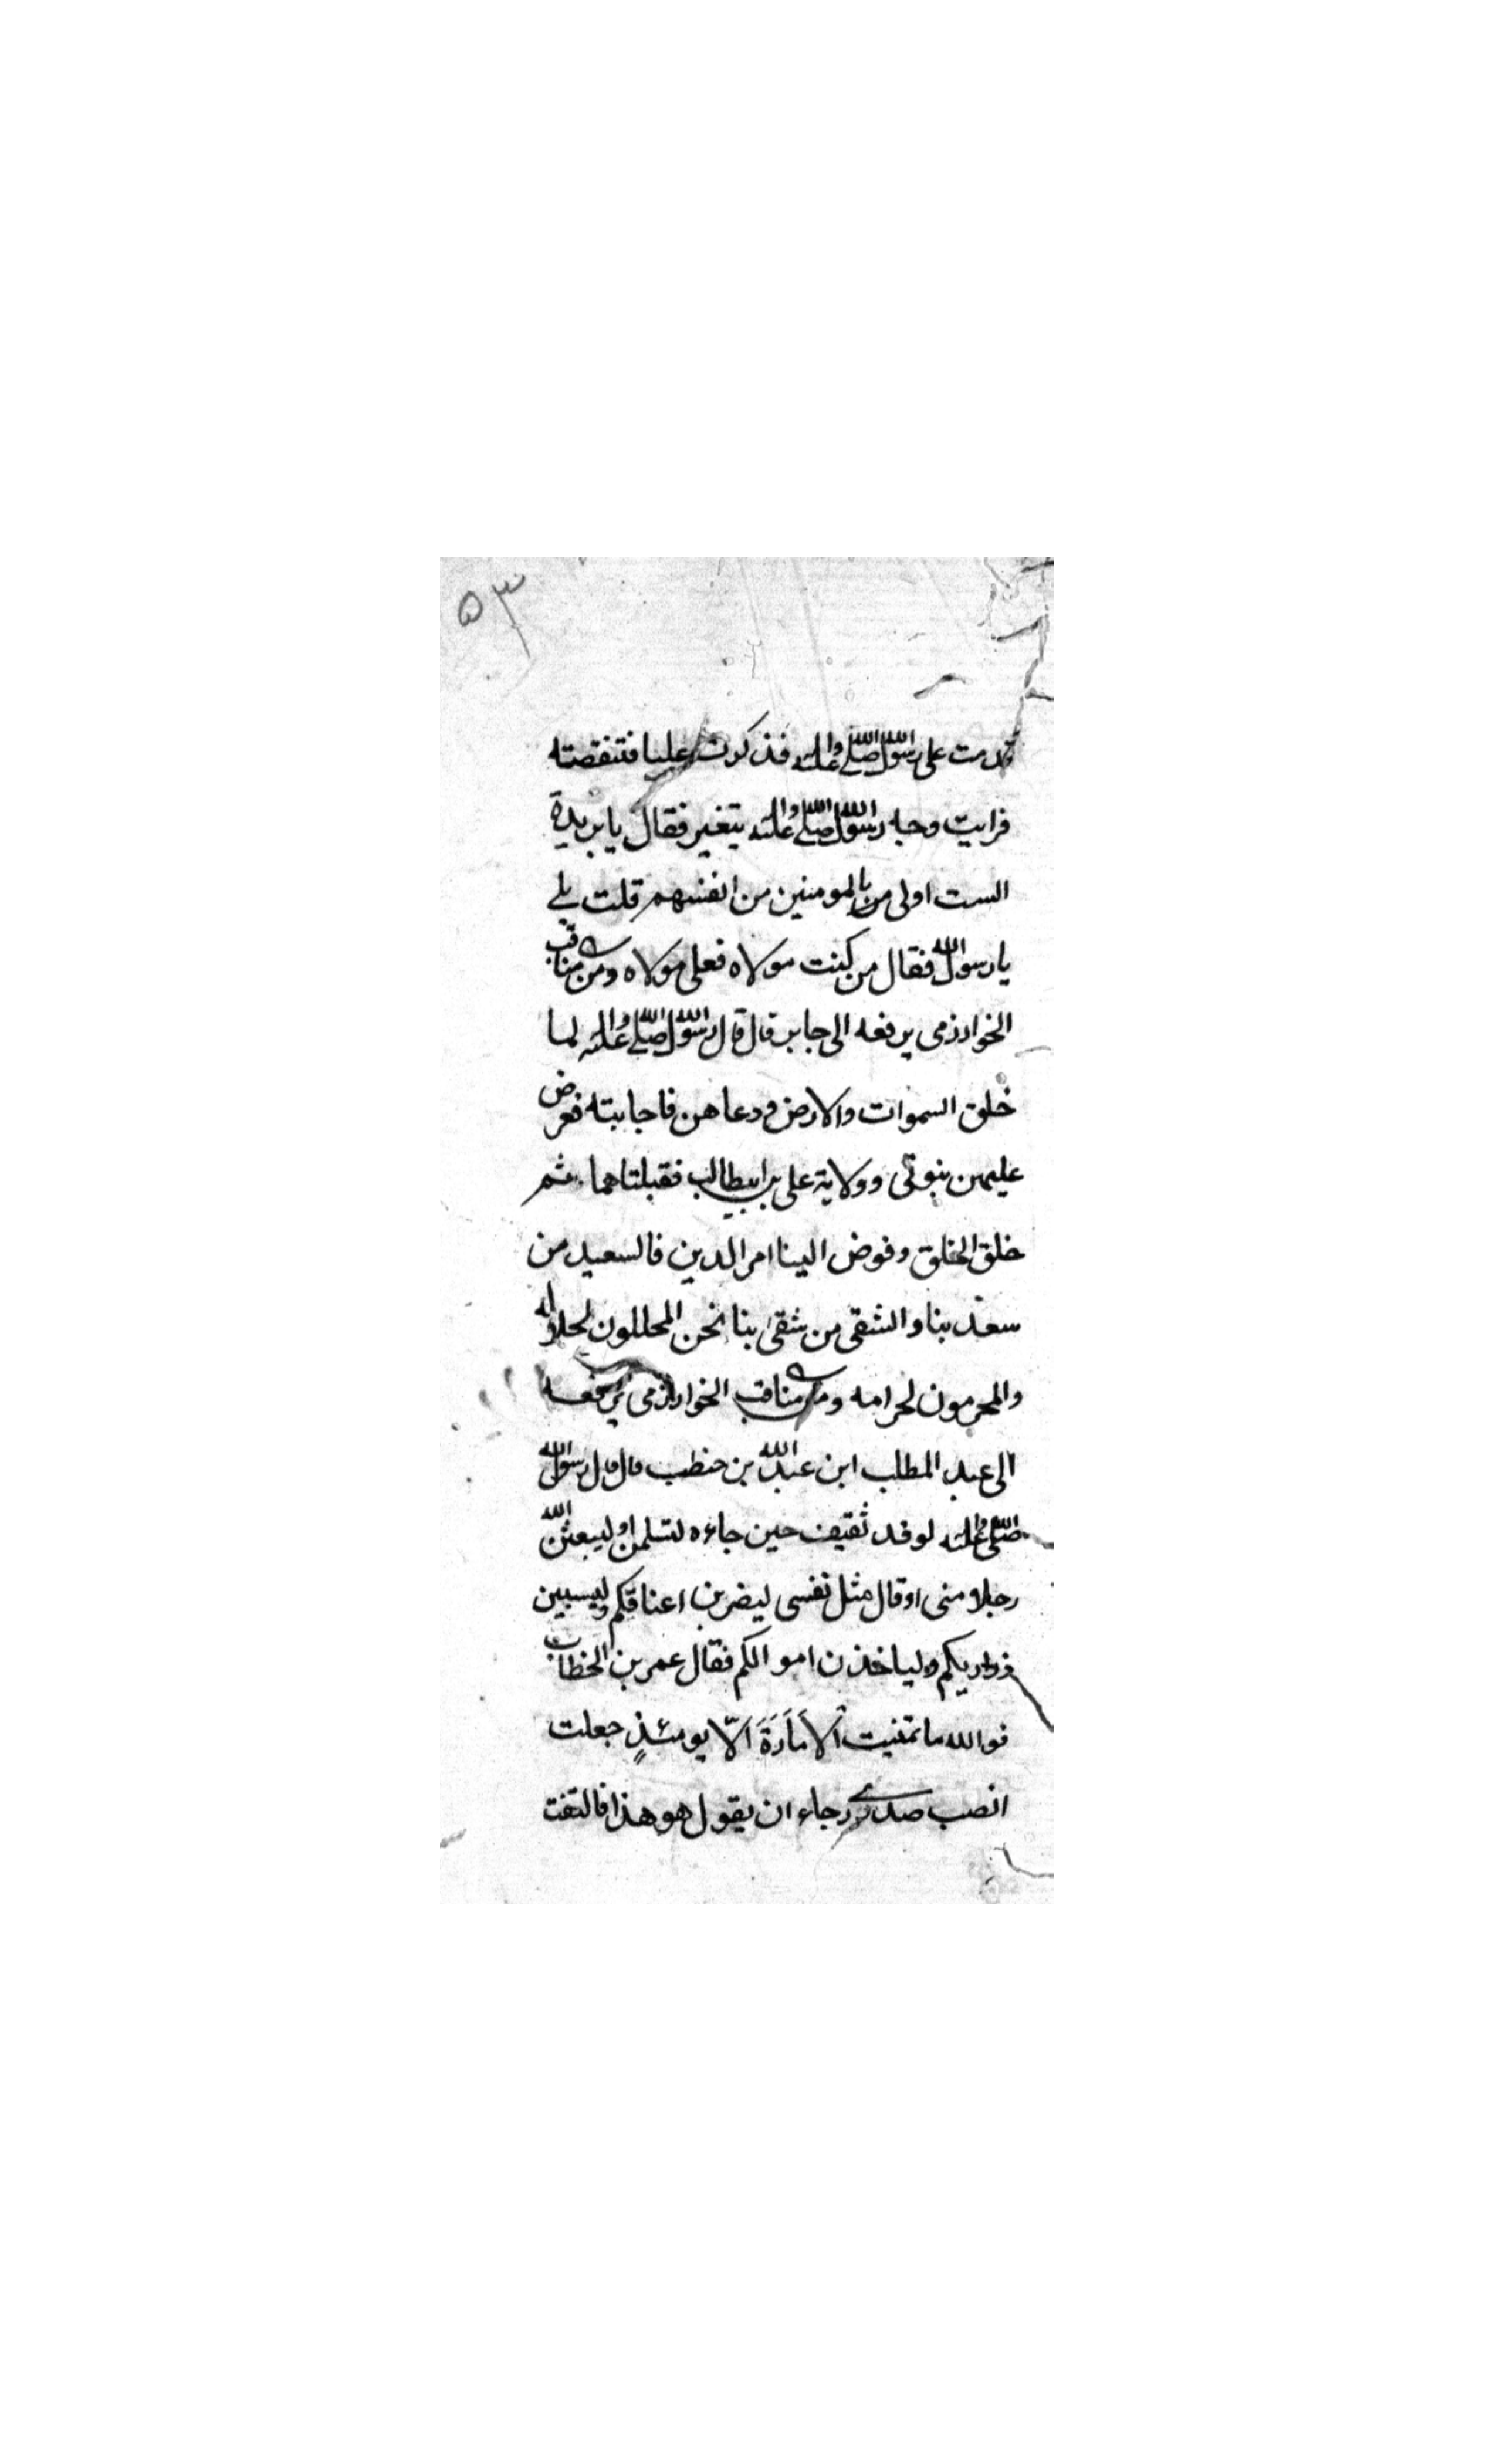 ٥٣
قدمت على رسول الله صلى الله عليه واله فذكرت عليا فتنقصته
فرايت وجه رسول الله صلى الله عليه واله يتغير فقال يا بريدة
الست اولى من بالمومنين من انفسهم قلت بلى
يا رسول الله فقال من كنت مولاه فعلى مولاه ومن مناقب
الخوارزمى يرفعه الى جابر قال قال رسول الله صلى الله عليه واله لما
خلق السموات والارض ودعاهن فاجابته فعرض
عليهن نبوتى وولاية على بن ابيطالب فقبلتاهما ثم
خلق الخلق وفوض الينا امر الدين فالسعيد من
سعد بنا والشقى من شقى بنا نحن المحللون لحلاله
والمحرمون لحرامه ومن مناقب الخوارزمى يرفعه
الى عبد المطلب ابن عبد الله بن حنطب قال قال رسول الله
صلى الله عليه واله لوفد ثقيف حين جاءه لتسلمن او ليبعثن الله
رجلا منى او قال مثل نفسى ليضربن اعناقكم وليسبين
ذراريكم وليأخذن اموالكم فقال عمر بن الخطاب
فوالله ما تمنيت الْاَمَارَةَ الّا يومئذٍ جعلت
انصب صدرى رجاء ان يقول هو هذا فالتفت